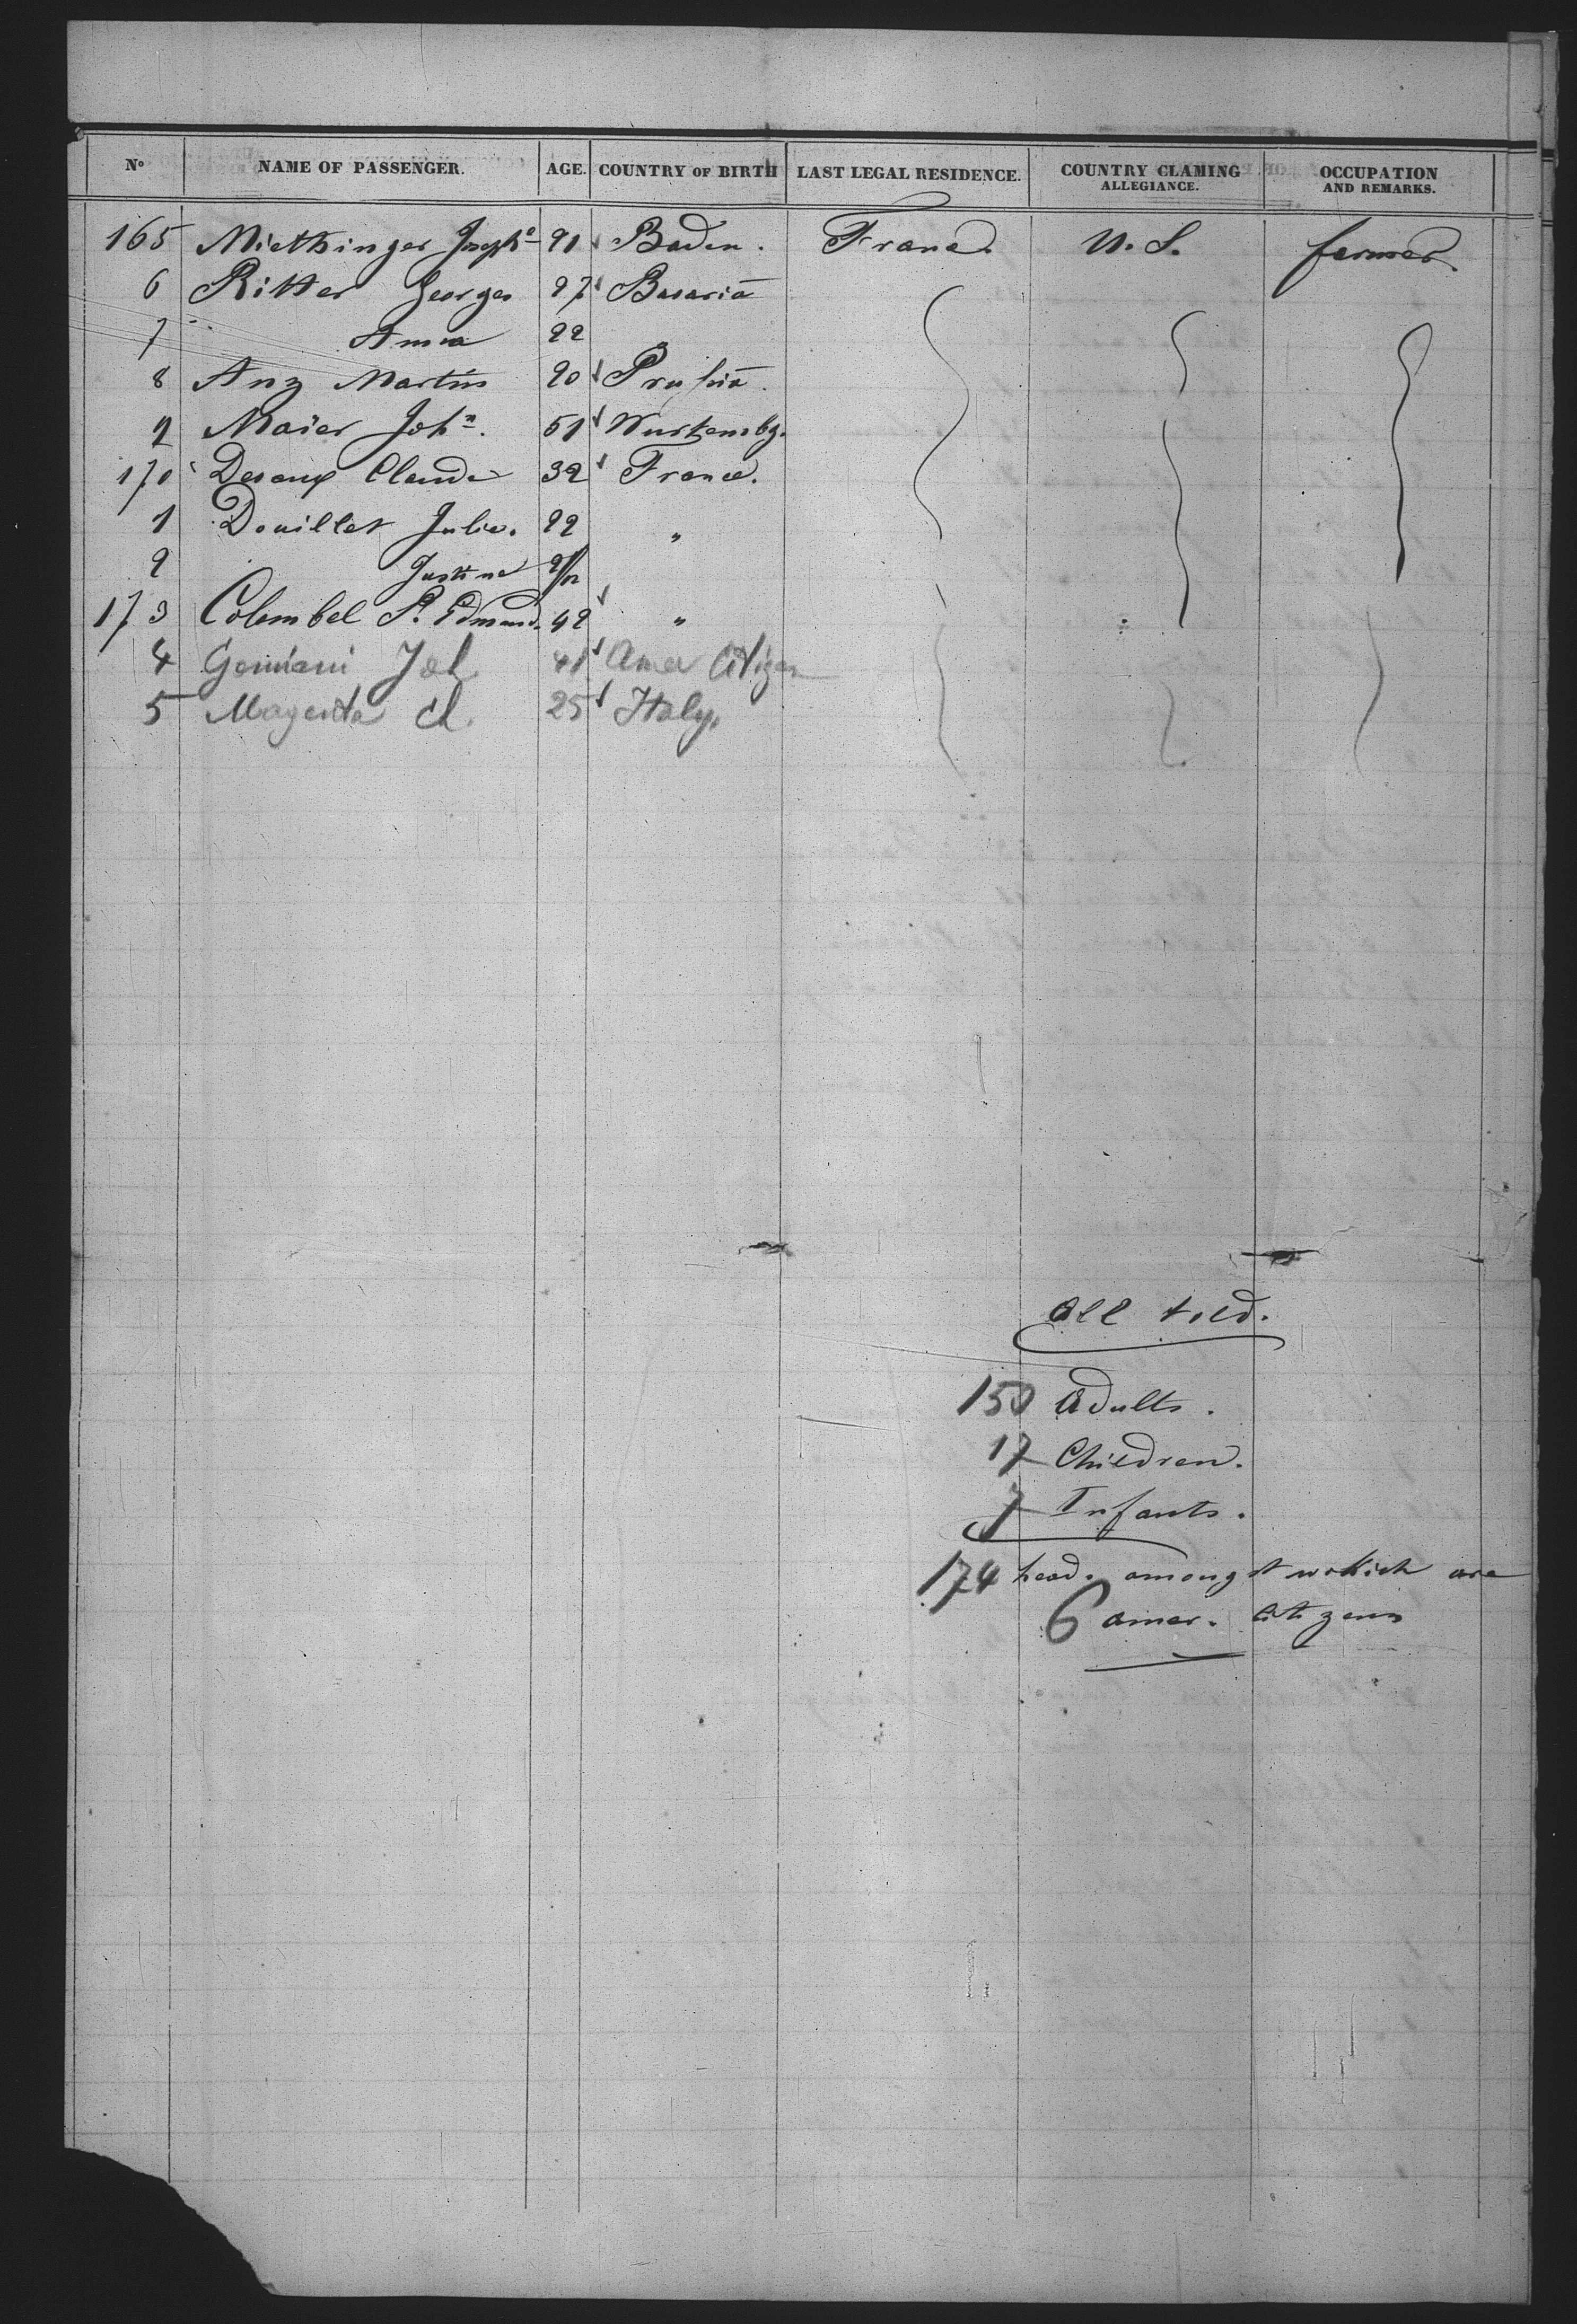 Nº NAME OF PASSENGER. AGE. COUNTRY OF BIRTH LAST LEGAL RESIDENCE. COUNTRY CLAMING ALLEGIANCE. OCCUPATION AND REMARKS.
165 Miethinger Josephe 21 Baden. France. U.S. farmer.
6 Ritter Georges 27 Bavaria
7 Anna 22
8 Anz Martin 20 Prussia.
9 Maier John. 51 Wurtembg.
170 Desaux Claude 32 France.
1 Douillet Julie. 22 "
2 Justine 9/12
173 Colombel P. Edmund. 42 "
4 Gemiani Joh 41 Amer Citizen
5 Magenta Ch. 25 Italy.
All told.
150 Adults.
17 Children.
7 Infants.
174 head. amongst which are
6 amer. citizens